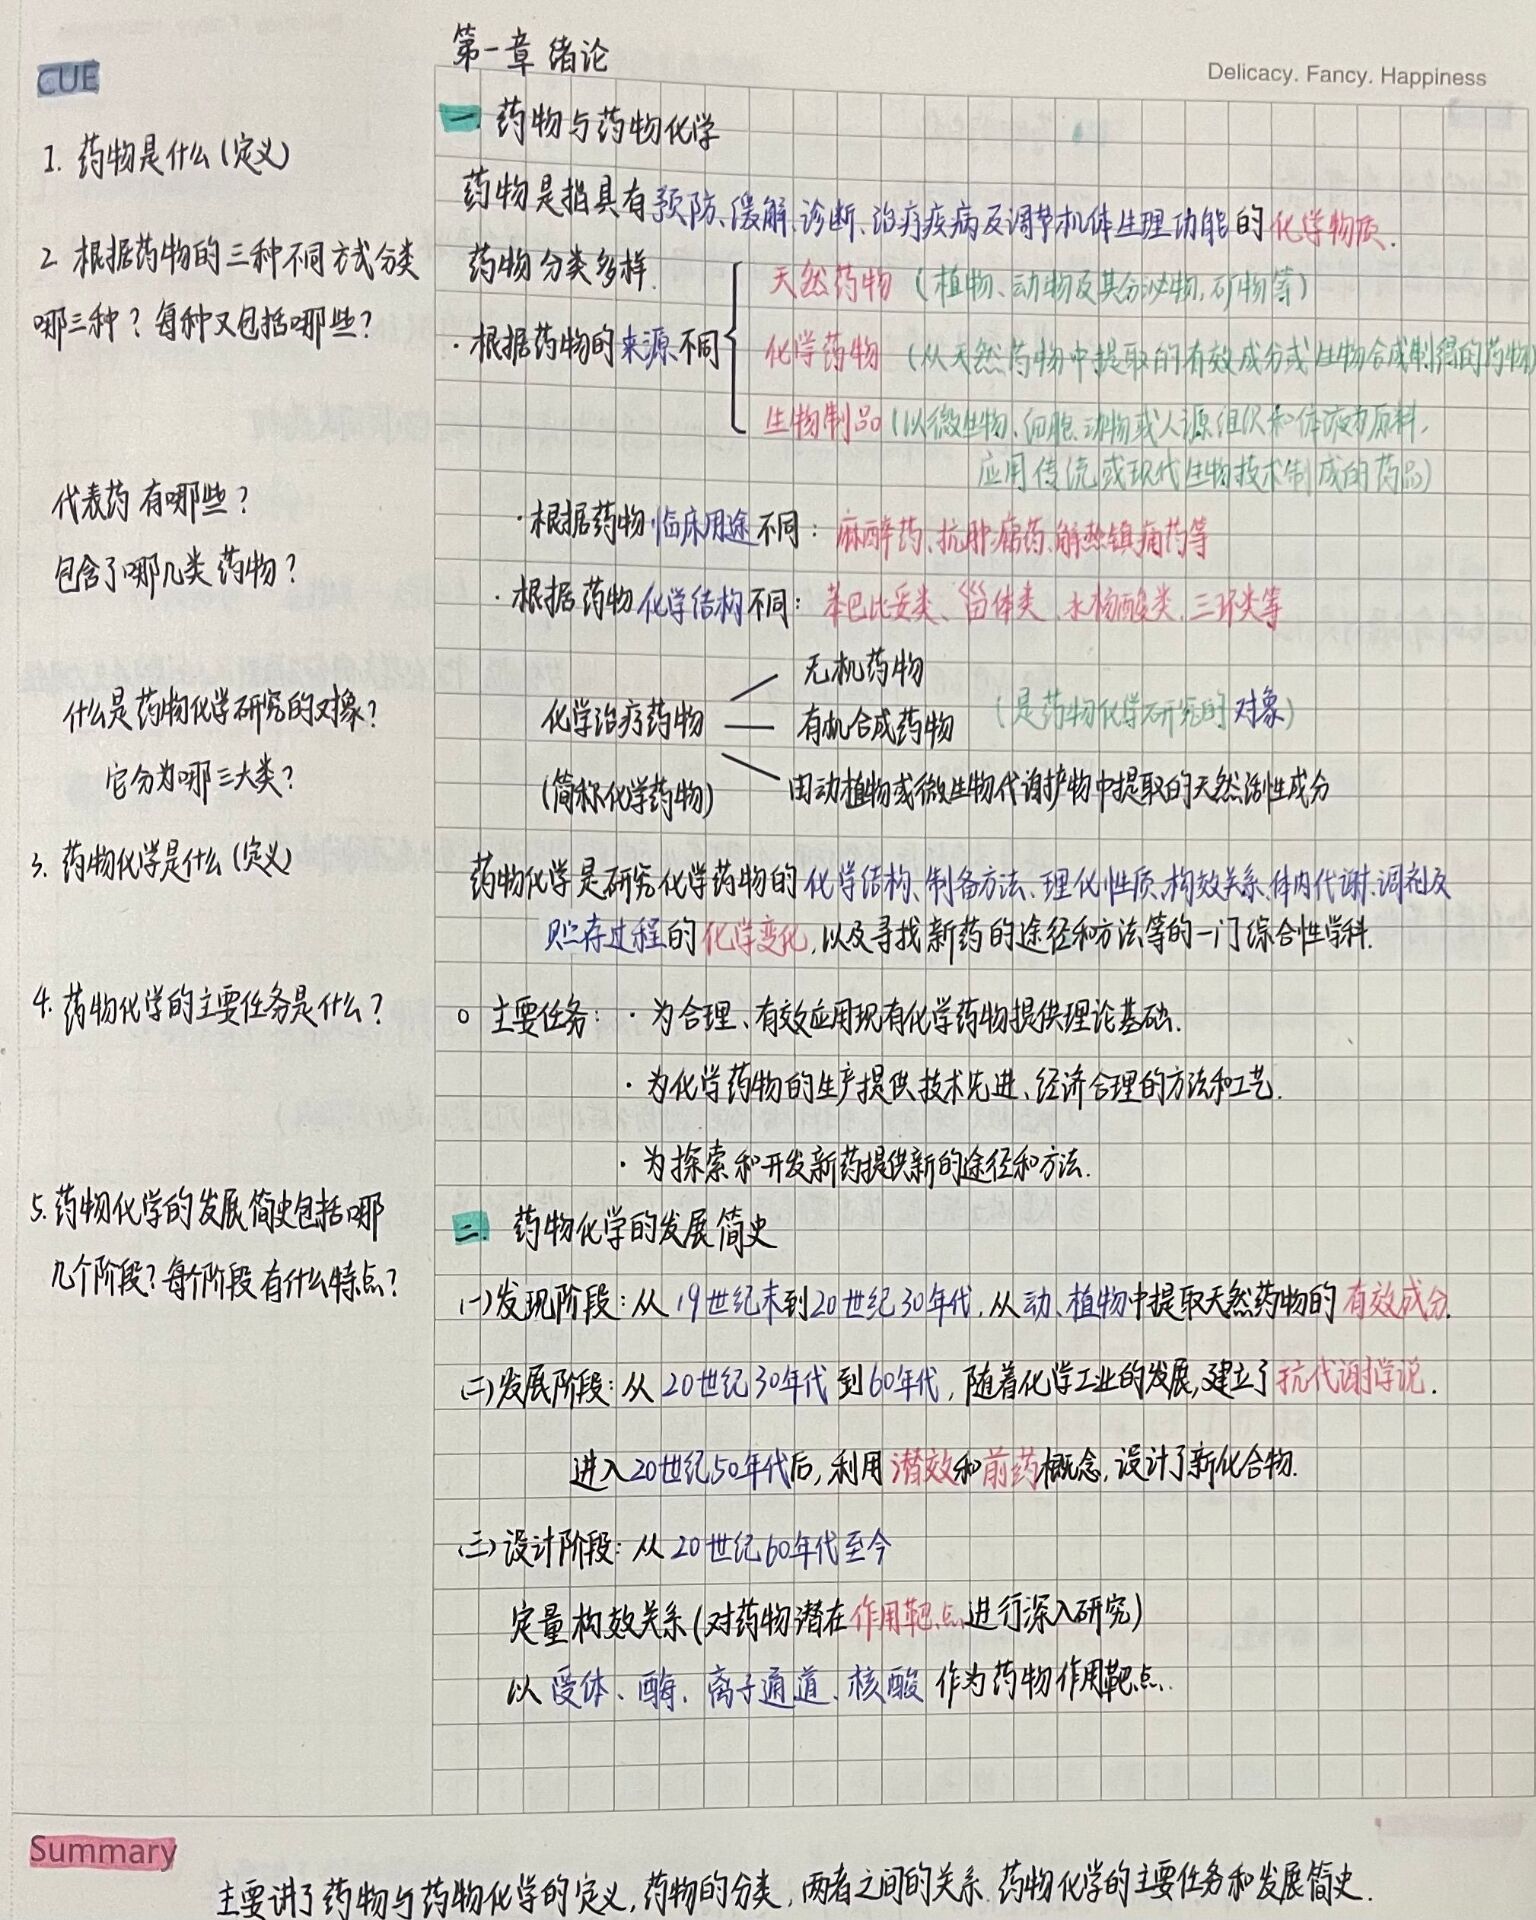 第一章 绪论
Delicacy. Fancy. Happiness
CUE
1. 药物是什么(定义)
2. 根据药物的三种不同方式分类
哪三种？每种又包括哪些？
代表药有哪些？
包含了哪几类药物？
什么是药物化学研究的对象？
它分为哪三大类？
3. 药物化学是什么(定义)
4. 药物化学的主要任务是什么？
5. 药物化学的发展简史包括哪
几个阶段？每个阶段有什么特点？
一. 药物与药物化学
药物是指具有预防、缓解、诊断、治疗疾病及调节机体生理功能的化学物质.
药物分类多样.
·根据药物的来源不同
天然药物 (植物、动物及其分泌物,矿物等)
化学药物 (从天然药物中提取的有效成分或生物合成制得的药物)
生物制品 (以微生物、细胞、动物或人源组织和体液为原料,
应用传统或现代生物技术制成的药品)
·根据药物临床用途不同：麻醉药、抗肿瘤药、解热镇痛药等
·根据药物化学结构不同：苯巴比妥类、甾体类、水杨酸类、三环类等
无机药物
化学治疗药物 有机合成药物 (是药物化学研究的对象)
(简称化学药物) 由动植物或微生物代谢产物中提取的天然活性成分
药物化学是研究化学药物的化学结构、制备方法、理化性质、构效关系、体内代谢、调剂及
贮存过程的化学变化,以及寻找新药的途径和方法等的一门综合性学科.
o 主要任务：·为合理、有效应用现有化学药物提供理论基础.
·为化学药物的生产提供技术先进、经济合理的方法和工艺.
·为探索和开发新药提供新的途径和方法.
二. 药物化学的发展简史
(一)发现阶段：从19世纪末到20世纪30年代,从动、植物中提取天然药物的有效成分.
(二)发展阶段：从20世纪30年代到60年代,随着化学工业的发展,建立了抗代谢学说.
进入20世纪50年代后,利用潜效和前药概念,设计了新化合物.
(三)设计阶段：从20世纪60年代至今
定量构效关系(对药物潜在作用靶点进行深入研究)
以受体、酶、离子通道、核酸作为药物作用靶点.
Summary
主要讲了药物与药物化学的定义,药物的分类,两者之间的关系.药物化学的主要任务和发展简史.